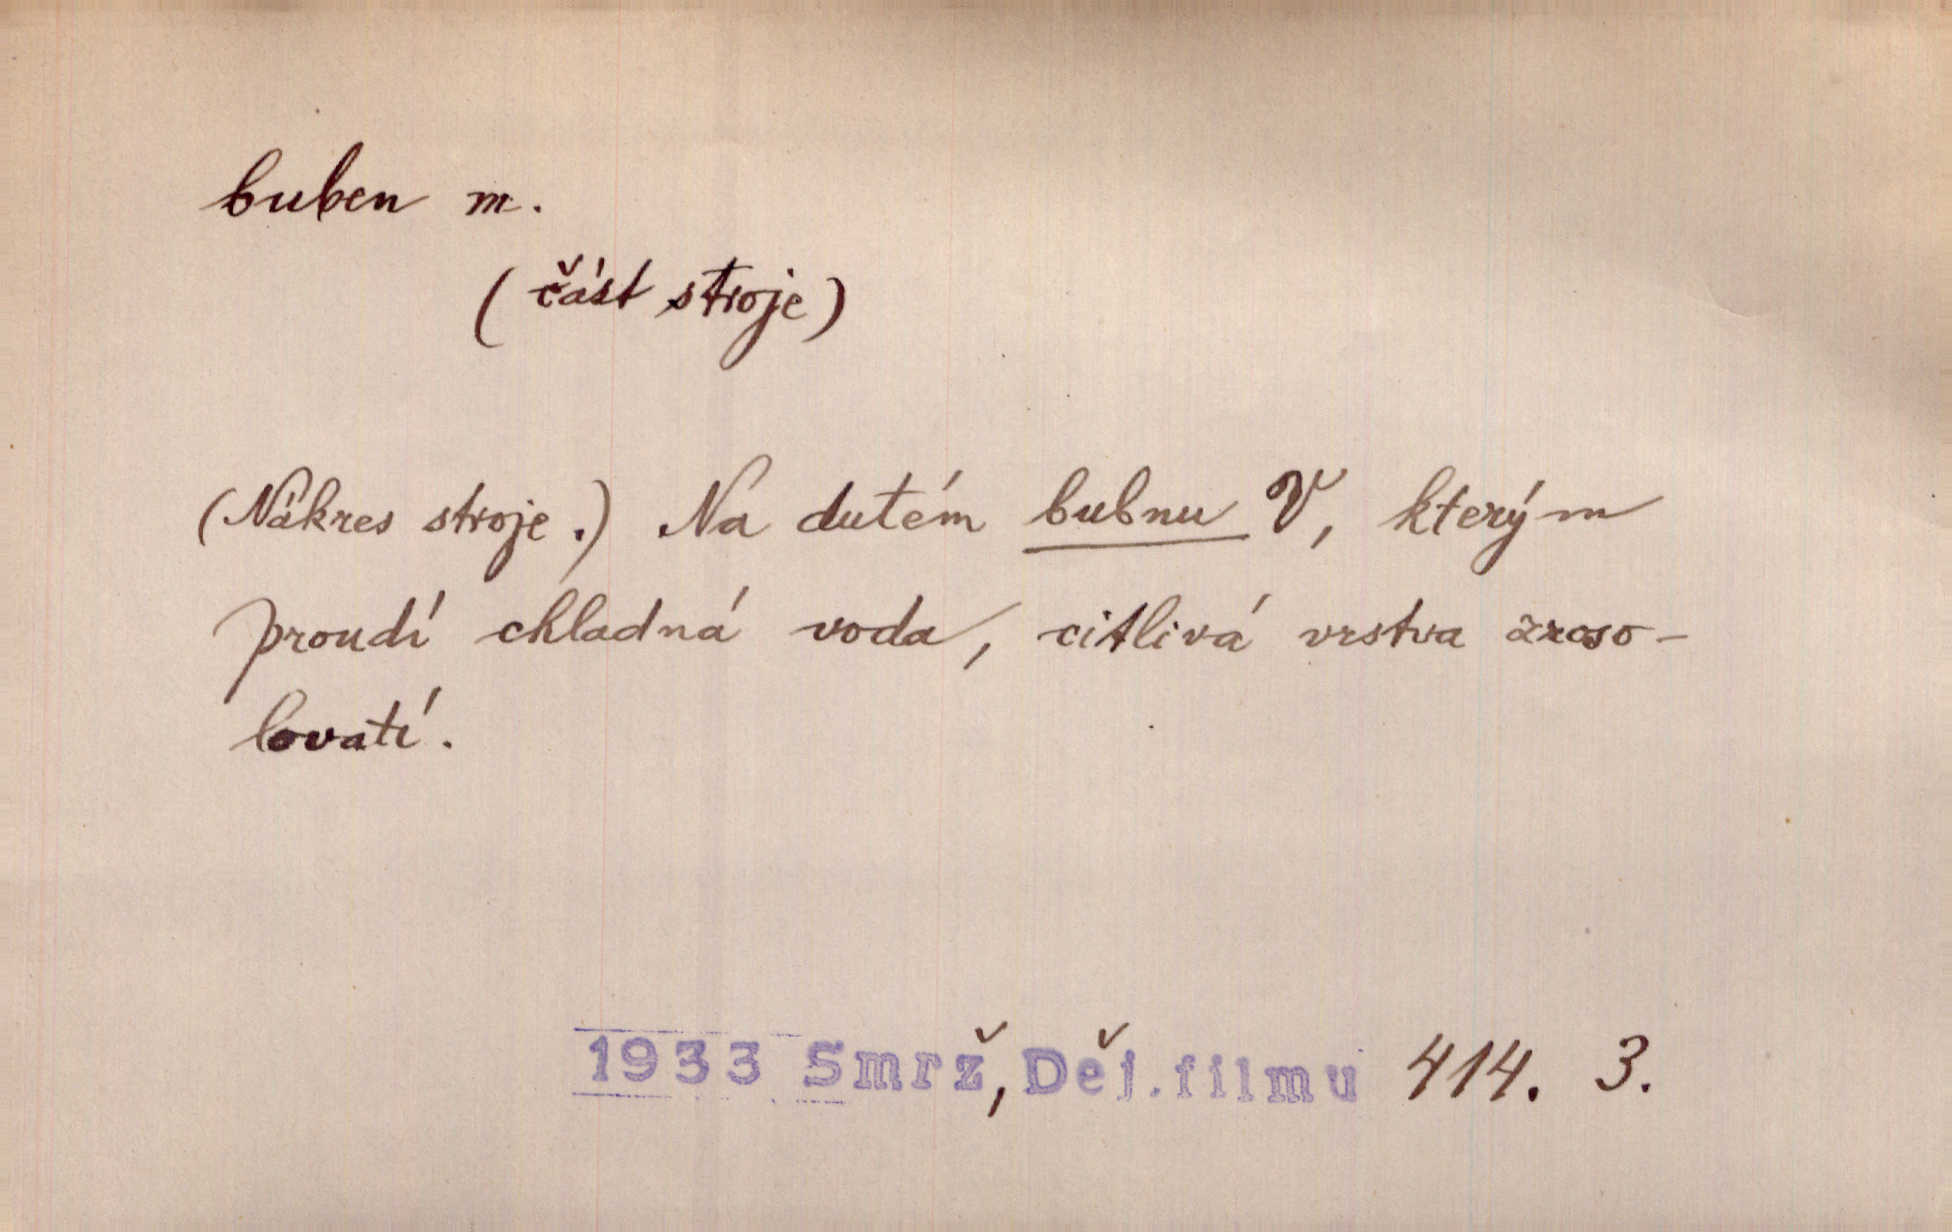 buben m.
(část stroje)
(Nákres stroje.) Na dutém bubnu V, kterým
proudí chladná voda, citlivá vrstva zroso-
lovatí.
1933 Smrž, Děj. filmu 414. 3.